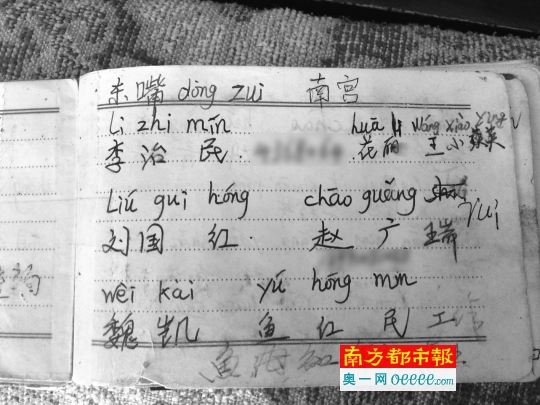 东嘴 dōng zuǐ 南宫
Li zhi mín huā li wáng xiǎo
李治民 花丽 王小英
Liú gui hóng chāo guǎng ruì
刘国红 赵广瑞
wēi kǎi yú hóng mín
魏凯 鱼红民 工
鱼
南方都市報
奥一网 oeeee.com